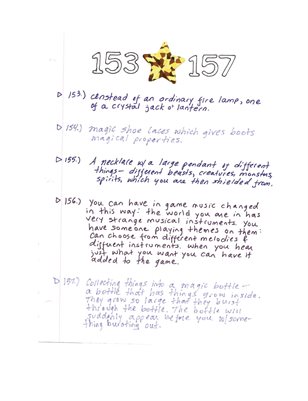 153 157
153.) Instead of an ordinary fire lamp, one
of a crystal jack o' lantern.
154.) magic shoe laces which gives boots
magical properties.
155.) A necklace w/ a large pendant of different
things - different beasts, creatures, monsters,
spirits, which you are then shielded from.
156.) You can have in game music changed
in this way: the world you are in has
very strange musical instruments. You
have someone playing themes on them:
Can choose from different melodies &
different instruments. when you hear
just what you want you can have it
added to the game.
157.) Collecting things into a magic bottle -
a bottle that has things grow inside.
They grow so large that they burst
through the bottle. The bottle will
suddenly appear before you w/ some-
thing bursting out.